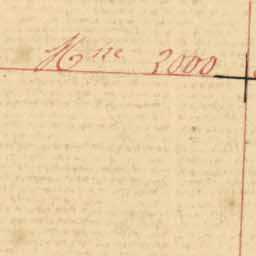 Hne 2000